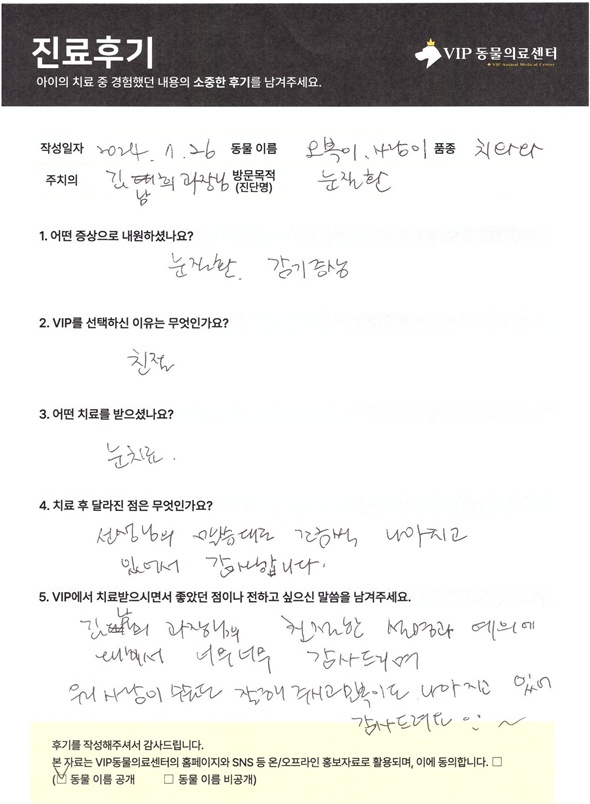 진료후기
아이의 치료 중 경험했던 내용의 소중한 후기를 남겨주세요.
VIP 동물의료센터
VIP Animal Medical Center
작성일자 2024. 1. 26 동물 이름 오복이, 사랑이 품종 치와와
주치의 김 희 과장님 방문목적 (진단명) 눈질환
1. 어떤 증상으로 내원하셨나요?
눈질환. 감기증상
2. VIP를 선택하신 이유는 무엇인가요?
친절
3. 어떤 치료를 받으셨나요?
눈치료.
4. 치료 후 달라진 점은 무엇인가요?
선생님의 말씀대로 조금씩 나아지고
있어서 감사합니다.
5. VIP에서 치료받으시면서 좋았던 점이나 전하고 싶으신 말씀을 남겨주세요.
김 희 과장님의 친절한 설명과 예의에
대해서 너무너무 감사드리며
우리 사랑이 수술도 잘해 주시고 오복이도 나아지고 있어
감사드려요 ~
후기를 작성해주셔서 감사드립니다.
본 자료는 VIP동물의료센터의 홈페이지와 SNS 등 온/오프라인 홍보자료로 활용되며, 이에 동의합니다. □
(☑ 동물 이름 공개 □ 동물 이름 비공개)